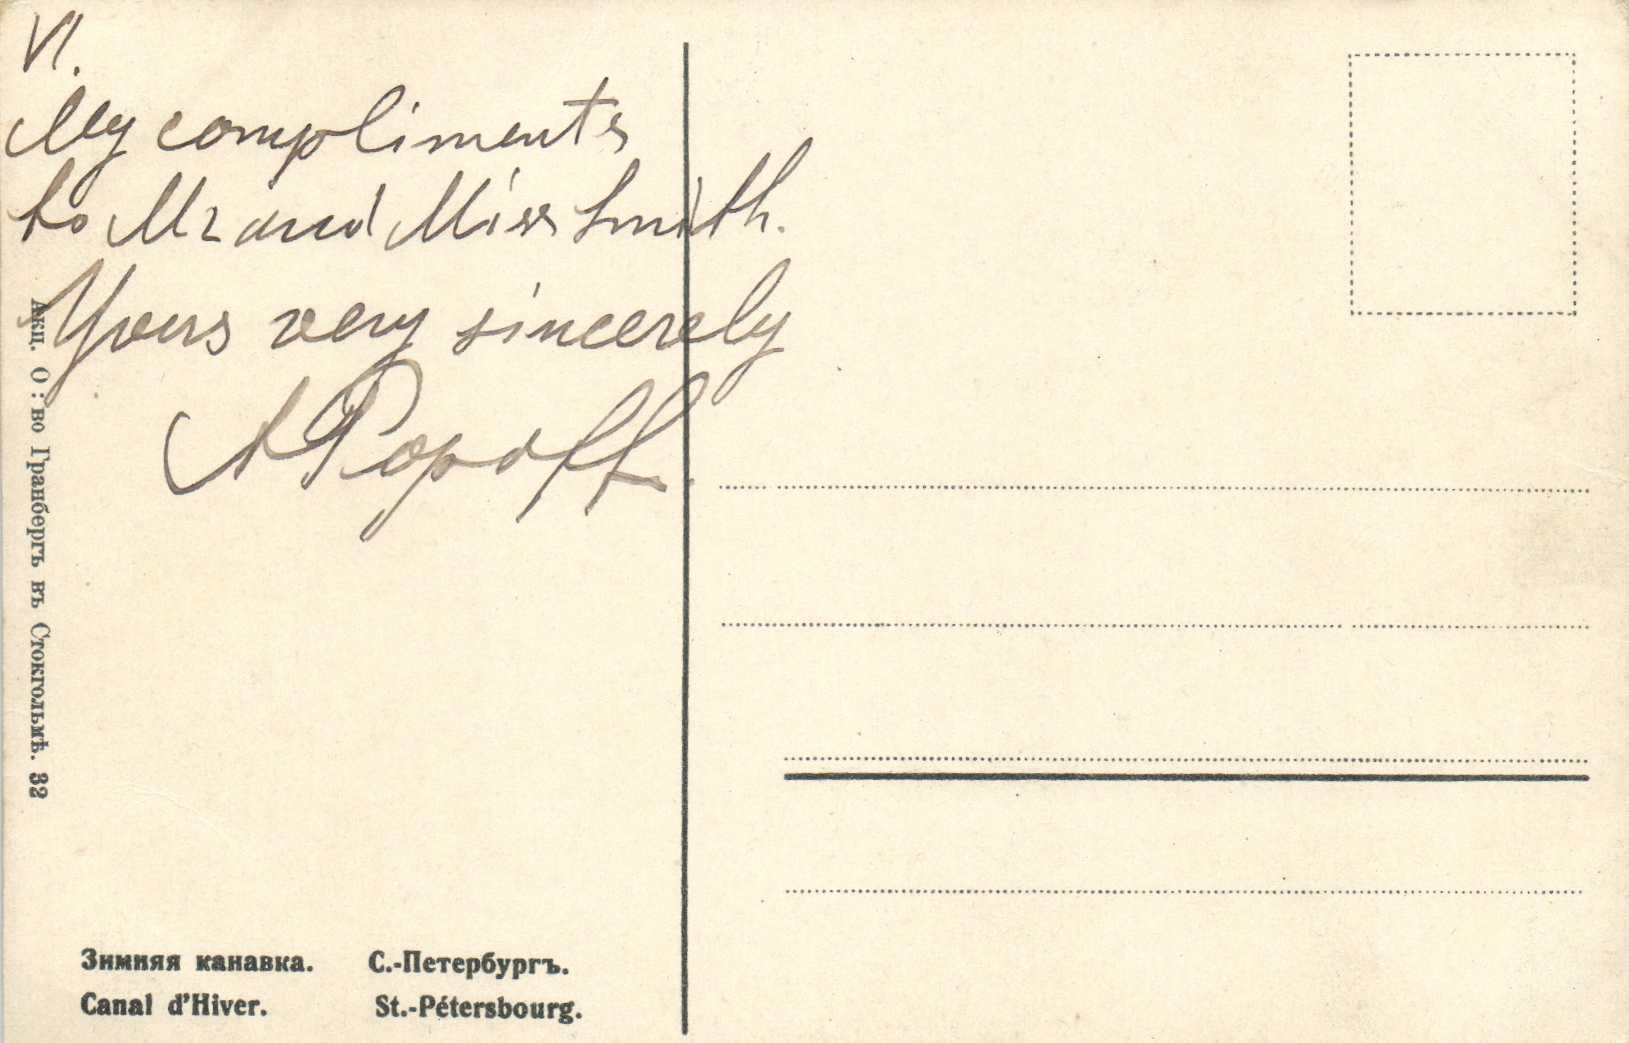 VI.
My compliments
to Mr and Miss Smith.
Yours very sincerely
A Popoff.
Акц. О: во Гранбергъ въ Стокгольмѣ. 32
Зимняя канавка. С.-Петербургъ.
Canal d'Hiver. St.-Pétersbourg.